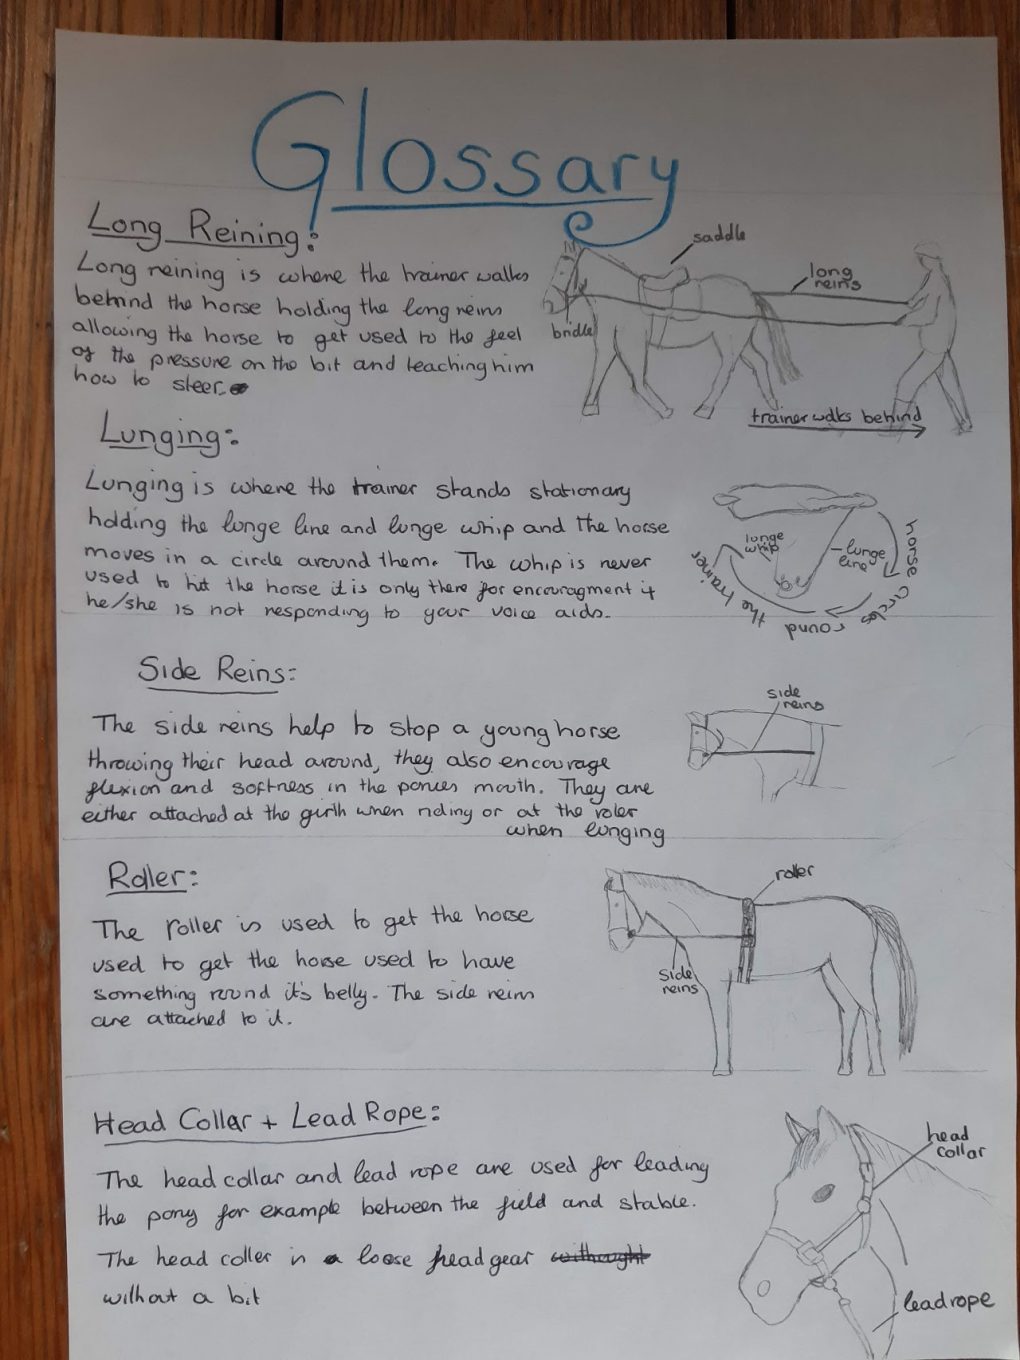 Glossary
Long Reining:
Long reining is where the trainer walks
behind the horse holding the long reins
allowing the horse to get used to the feel
of the pressure on the bit and teaching him
how to steer.
saddle
long
reins
bridle
trainer walks behind
Lunging:
Lunging is where the trainer stands stationary
holding the lunge line and lunge whip and the horse
moves in a circle around them. The whip is never
used to hit the horse it is only there for encouragment if
he/she is not responding to your voice aids.
lunge
whip
lunge
line
horse circles round the trainer
Side Reins:
The side reins help to stop a young horse
throwing their head around, they also encourage
flexion and softness in the ponies mouth. They are
either attached at the girth when riding or at the roler
when lunging
side
reins
Roller:
The roller is used to get the horse
used to get the horse used to have
something round it's belly. The side reins
are attached to it.
roller
side
reins
Head Collar + Lead Rope:
The head collar and lead rope are used for leading
the pony for example between the field and stable.
The head coller is a loose headgear
without a bit
head
collar
lead rope